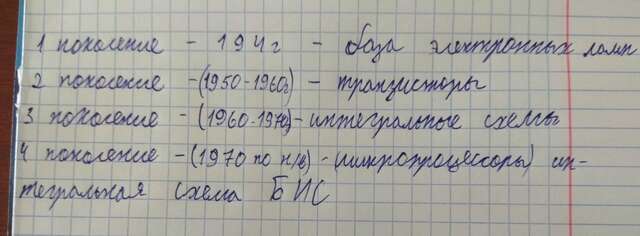 1 поколение - 194г - база электронных ламп
2 поколение -(1950-1960г) - транзисторы
3 поколение - (1960-1970)-интегральные схемы
4 поколение -(1970 по н/в) - (микропроцессоры) ин-
тегральная схема БИС